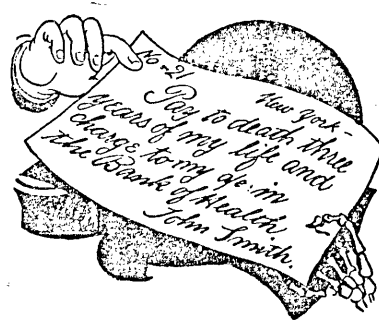 No. 21
New York-
Pay to death three
years of my life and
charge to my a/c in
the Bank of Health
John Smith.